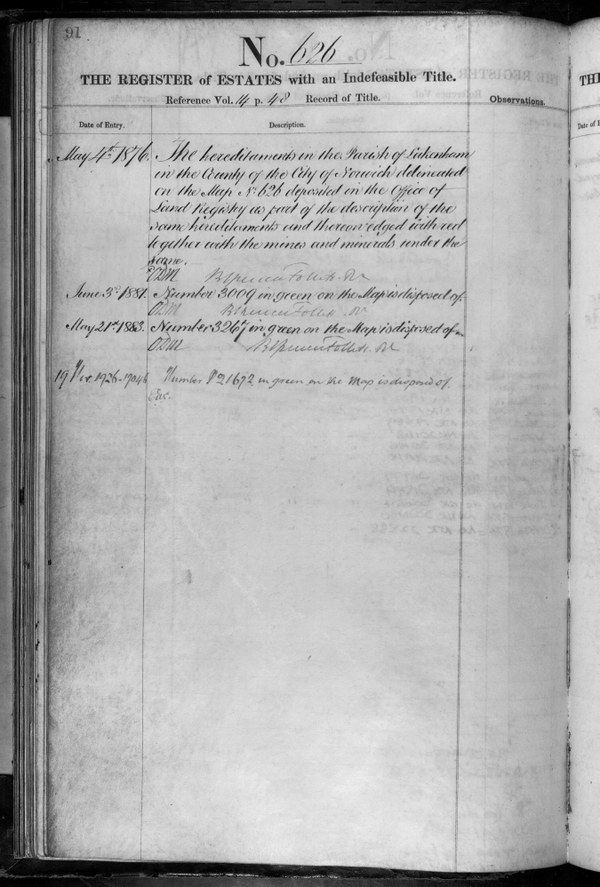 91
No. 626
THE REGISTER of ESTATES with an Indefeasible Title.
Reference Vol. 14 p. 48 Record of Title.
Observations.
Date of Entry. Description.
May 4th 1876. The hereditaments in the Parish of Lakenham
in the County of the City of Norwich delineated
on the Map No. 626 deposited in the Office of
Land Registry as part of the description of the
same hereditaments and thereon edged with red
together with the mines and minerals under the
same.
Brent Spencer Follett. R
June 3d 1881. Number 3009 in green on the Map is disposed of.
B Spencer Follett. R
May 21st 1883. Number 3267 in green on the Map is disposed of
B Spencer Follett. R
19 Nov. 1926 Number P21692 in green on the Map is disposed of.
THE
Date of E